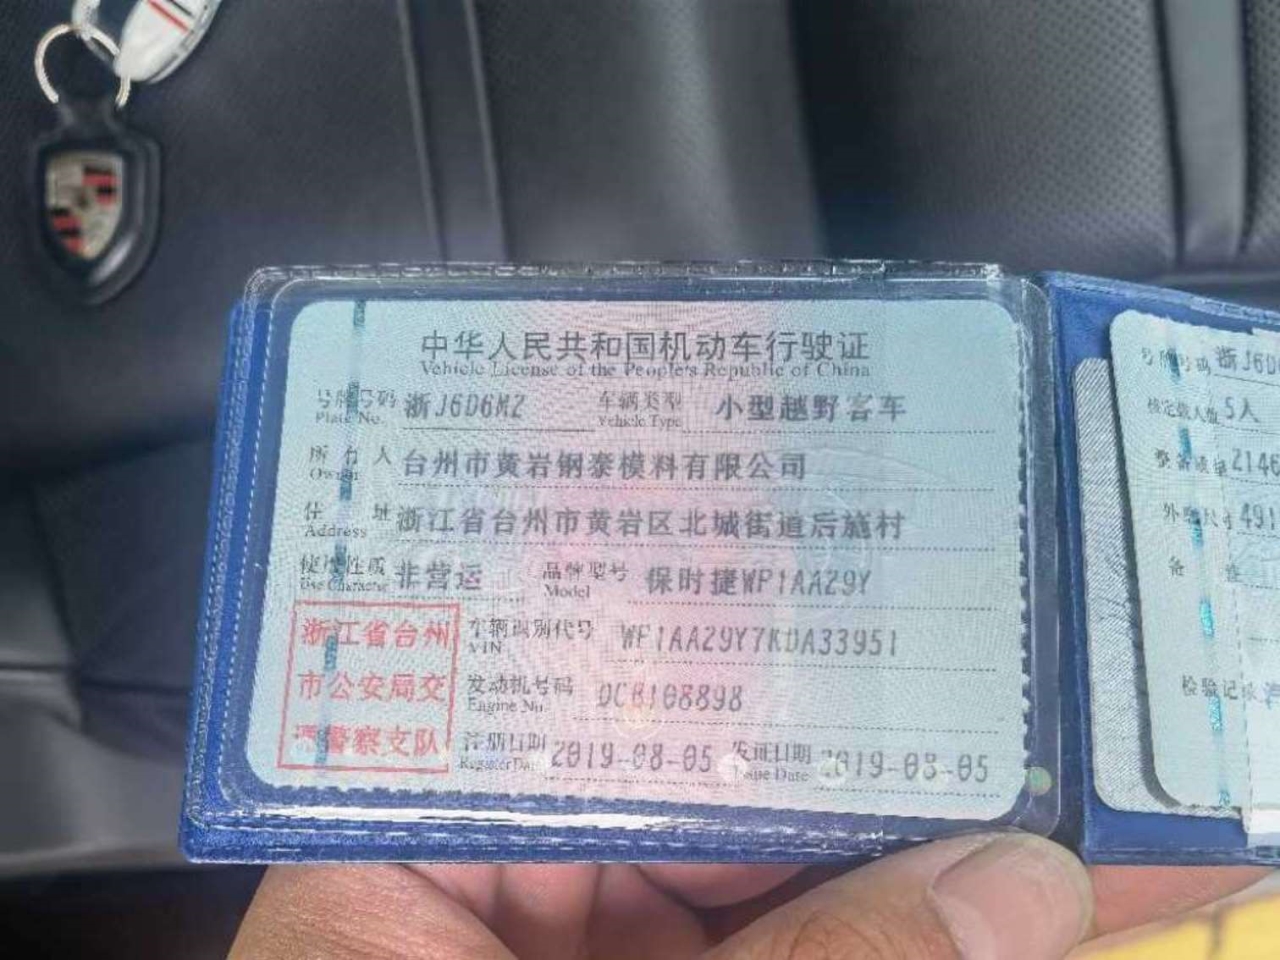 中华人民共和国机动车行驶证
Vehicle License of the People's Republic of China
号牌号码 浙J6D6M2 车辆类型 小型越野客车
Plate No. Vehicle Type
所有人 台州市黄岩钢泰模料有限公司
Owner
住址 浙江省台州市黄岩区北城街道后施村
Address
使用性质 非营运 品牌型号 保时捷WP1AA29Y
Use Character Model
车辆识别代号 WP1AA29Y7KDA33951
VIN
发动机号码 DCB108898
Engine No.
注册日期 2019-08-05 发证日期 2019-08-05
Register Date Issue Date
浙江省台州
市公安局交
通警察支队
号牌号码 浙J6D
核定载人数 5人
整备质量 2146
外廓尺寸 491
备注
检验记录